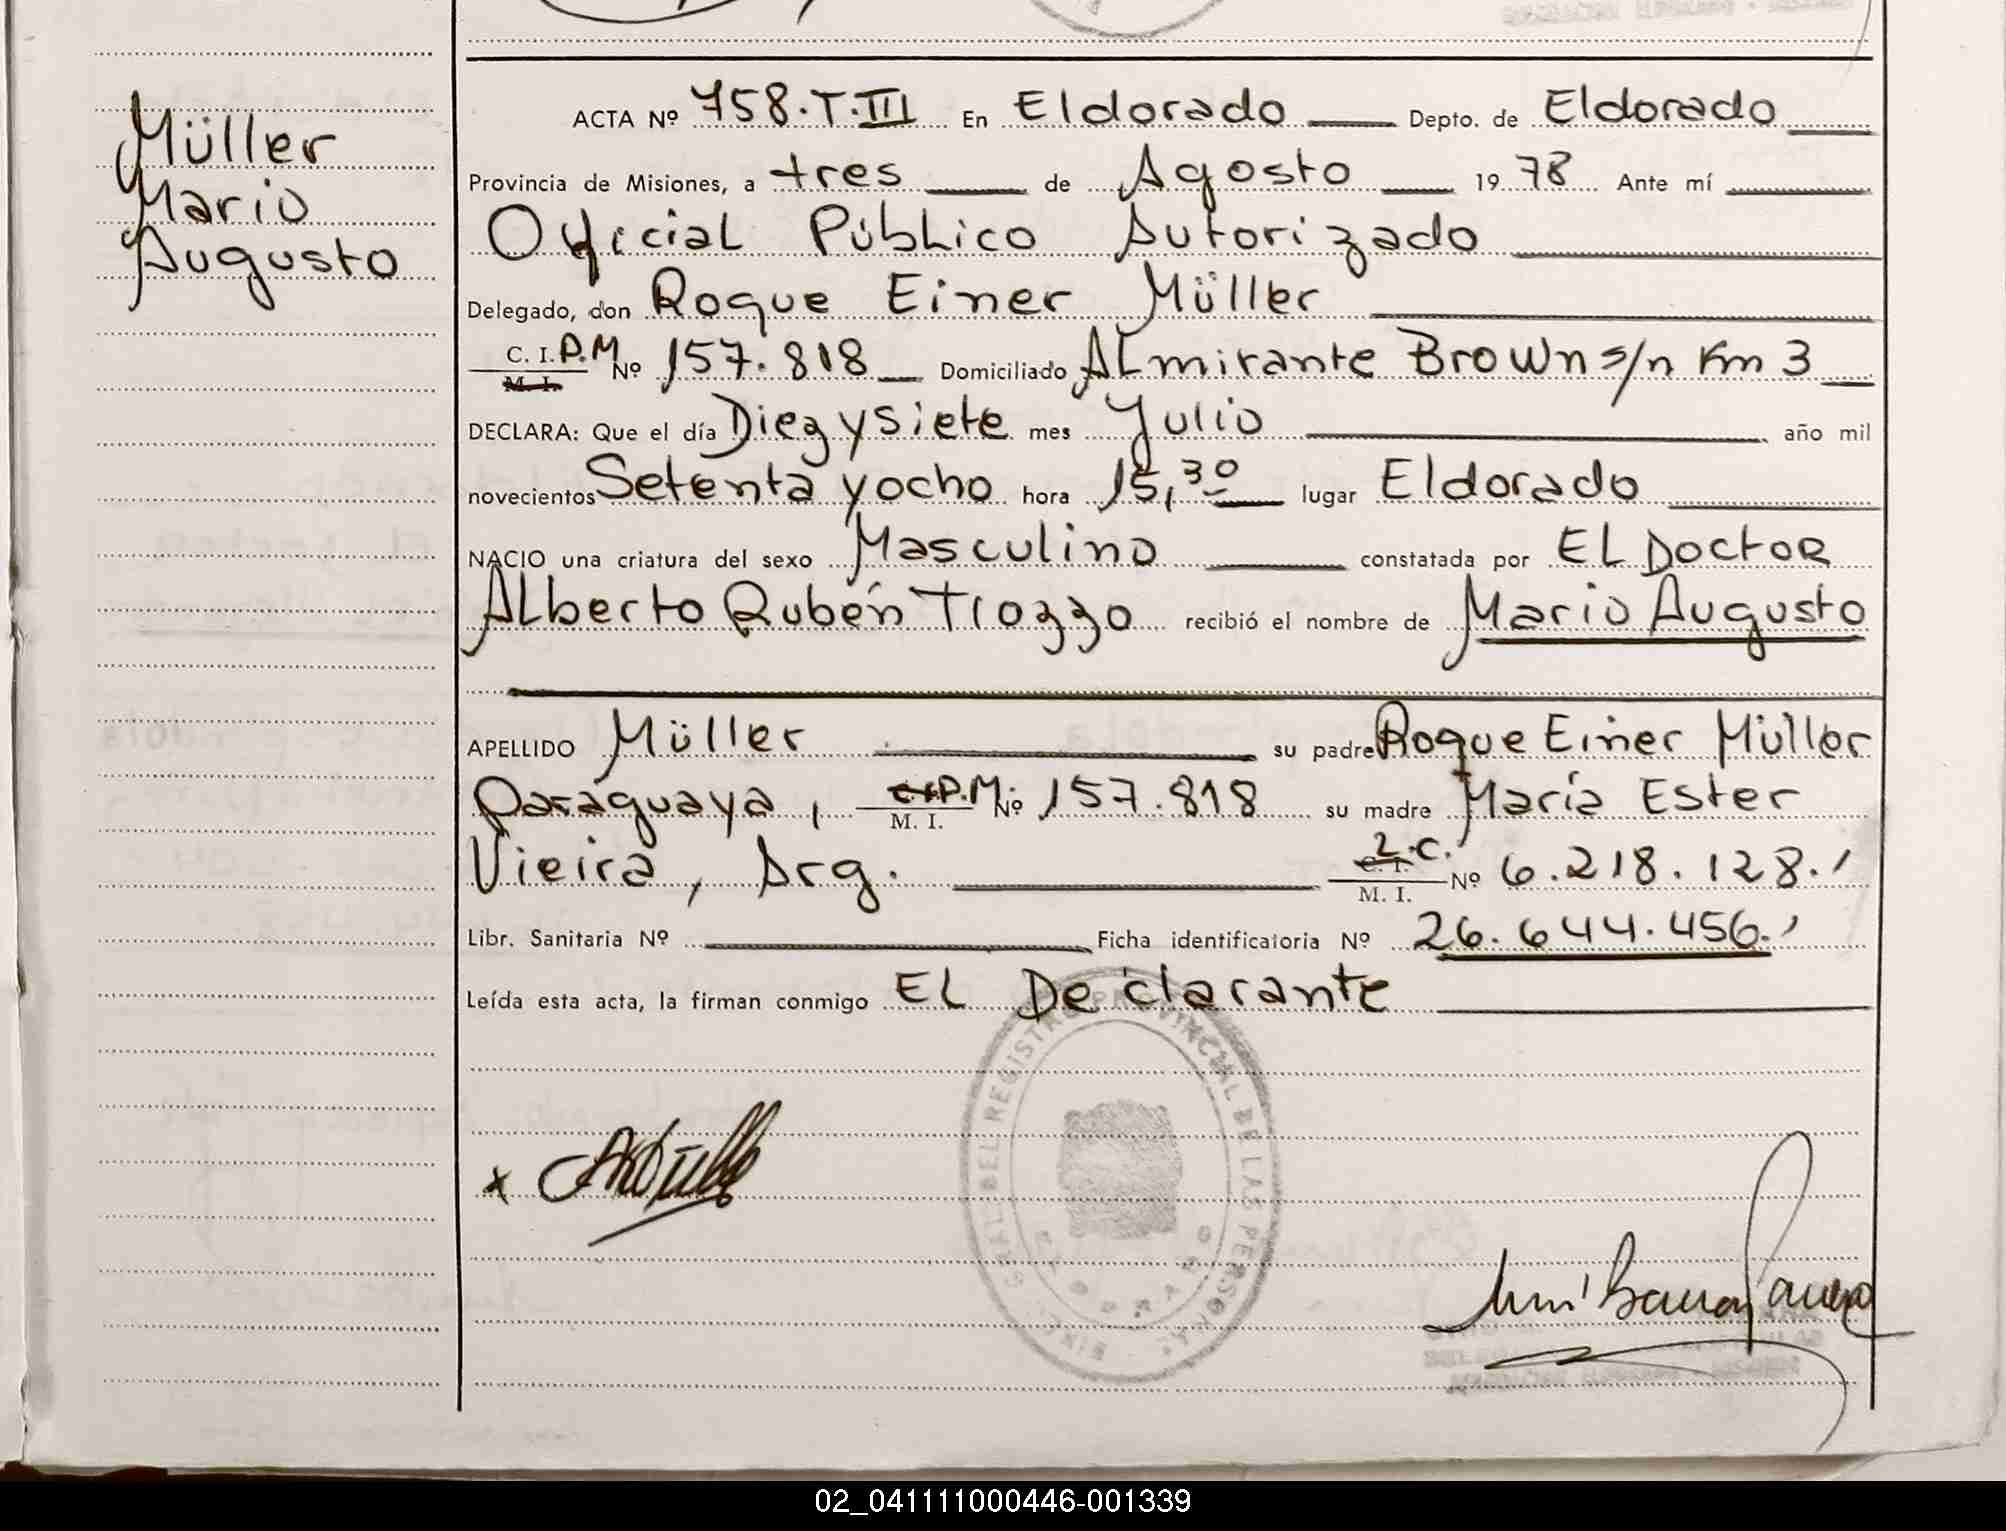 Müller
Mario
Augusto
ACTA Nº 758.T.III En Eldorado Depto. de Eldorado
Provincia de Misiones, a tres de Agosto 1978 Ante mí
Oficial Público Autorizado
Delegado, don Roque Einer Müller
C. I. P.M Nº 157.818 Domiciliado ALmirante Brown s/n Km 3
M. I.
DECLARA: Que el día Diez y Siete mes Julio año mil
novecientos Setenta y ocho hora 15,30 lugar Eldorado
NACIO una criatura del sexo Masculino constatada por EL DoctoR
ALberto Rubén Tiozzo recibió el nombre de Mario Augusto
APELLIDO Müller su padre Roque Einer Müller
Paraguaya, P.M. Nº 157.818 su madre María Ester
M. I.
Vieira, Arg. L.C. Nº 6.218.128.
C. I.
M. I.
Libr. Sanitaria Nº Ficha identificatoria Nº 26.644.456.
Leída esta acta, la firman conmigo EL Declarante
GRAL. DEL REGISTRO PROVINCIAL DE LAS PERSONAS
ELDORADO
x
02_041111000446-001339